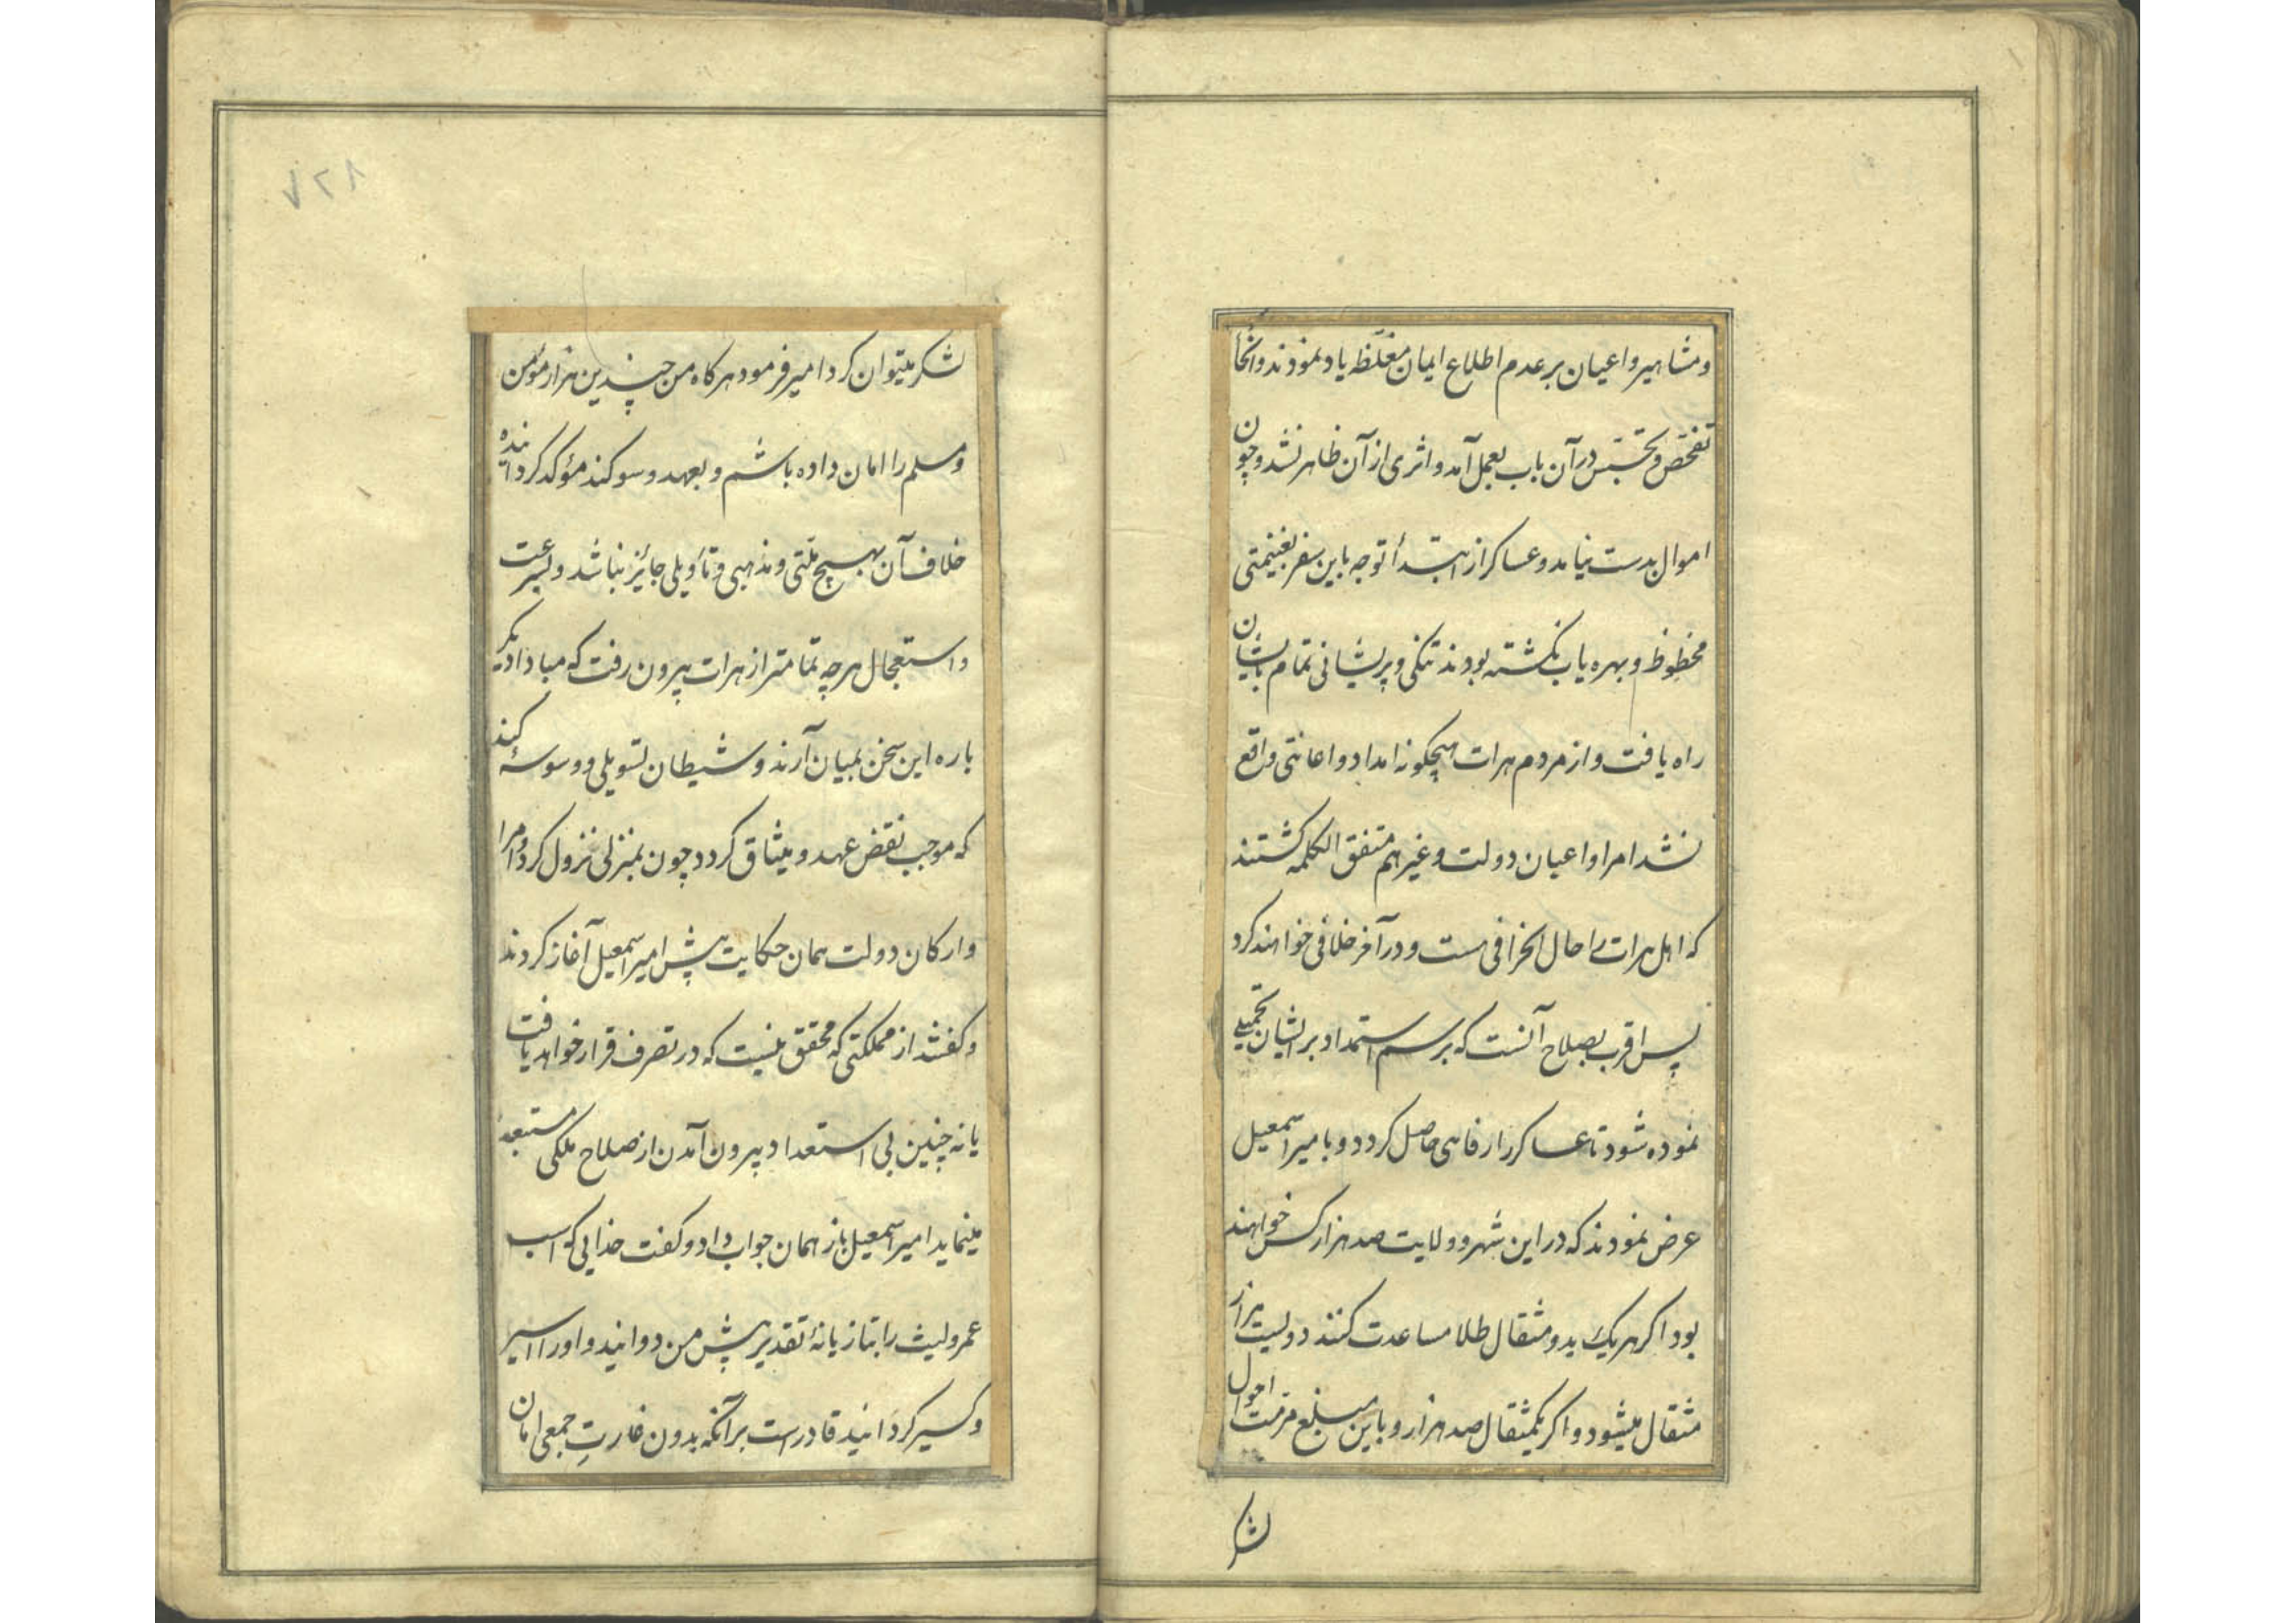 ومشاهیر واعیان بر عدم اطلاع ایمان مغلّظه یاد نمودند وانحا
تفحّص وتجسّس در آن باب بعمل آمد و اثری از آن ظاهر نشد و چون
اموال بدست نیامد و عساکر از ابتدأ توجه باین سفر بغنیمتی
محظوظ و بهره یاب نکشته بودند تنکی و پریشانی تمام بایشان
راه یافت و از مردم هرات هیچکونه امداد و اعانتی واقع
نشد امرا و اعیان دولت و غیرهم متفق الکلمه کشتند
که اهل هرات را حال انحرافی هست و در آخر خلافی خواهند کرد
پس اقرب بصلاح آنست که برسم استمداد بر ایشان تحمیلی
نموده شود تا عساکر را رفاهی حاصل کردد و بامیر اسمعیل
عرض نمودند که در این شهر و ولایت صد هزار کس خواهند
بود اکر هر یک بدو مثقال طلا مساعدت کنند دویست هزار
مثقال میشود و اکر یکمثقال صد هزار و باین مبلغ مرمت احوال
لش
۷۲۸
لشکر میتوان کرد امیر فرمود هرکاه من چندین هزار مؤمن
ومسلم را امان داده باشم و بعهد و سوکند مؤکد کردانیده
خلاف آن بهیچ ملّتی و مذهبی و تأویلی جائز نباشد و بسرعت
و استعجال هر چه تمامتر از هرات بیرون رفت که مبادا دیکر
باره این سخن بمیان آرند و شیطان تسویلی و وسوسهٔ کند
که موجب نقض عهد و میثاق کردد چون بمنزلی نزول کرد امرا
وارکان دولت همان حکایت پیش امیر اسمعیل آغاز کردند
و کفتند از مملکتی که محقق نیست که در تصرف قرار خواهد یافت
یا نه چنین بی استعداد بیرون آمدن از صلاح ملکی مستبعد
مینماید امیر اسمعیل باز همان جواب داد و کفت خدایی که اسب
عمرولیث را بتازیانهٔ تقدیر پیش من دوانید و او را اسیر
و کسیر کردانید قادر است بر آنکه بدون غارتِ جمعی امان